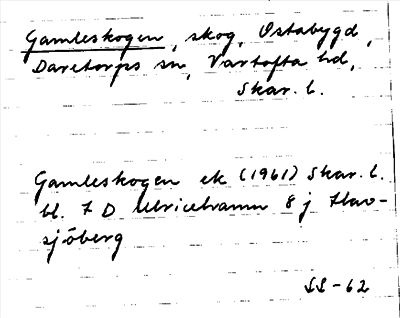 Gamleskogen, skog, Östabygd,
Daretorps sn, Vartofta hd,
Skar. l.
Gamleskogen ek (1961) Skar. l.
bl. 7 D Ulricehamn 8 j Hav-
sjöberg
SS-62